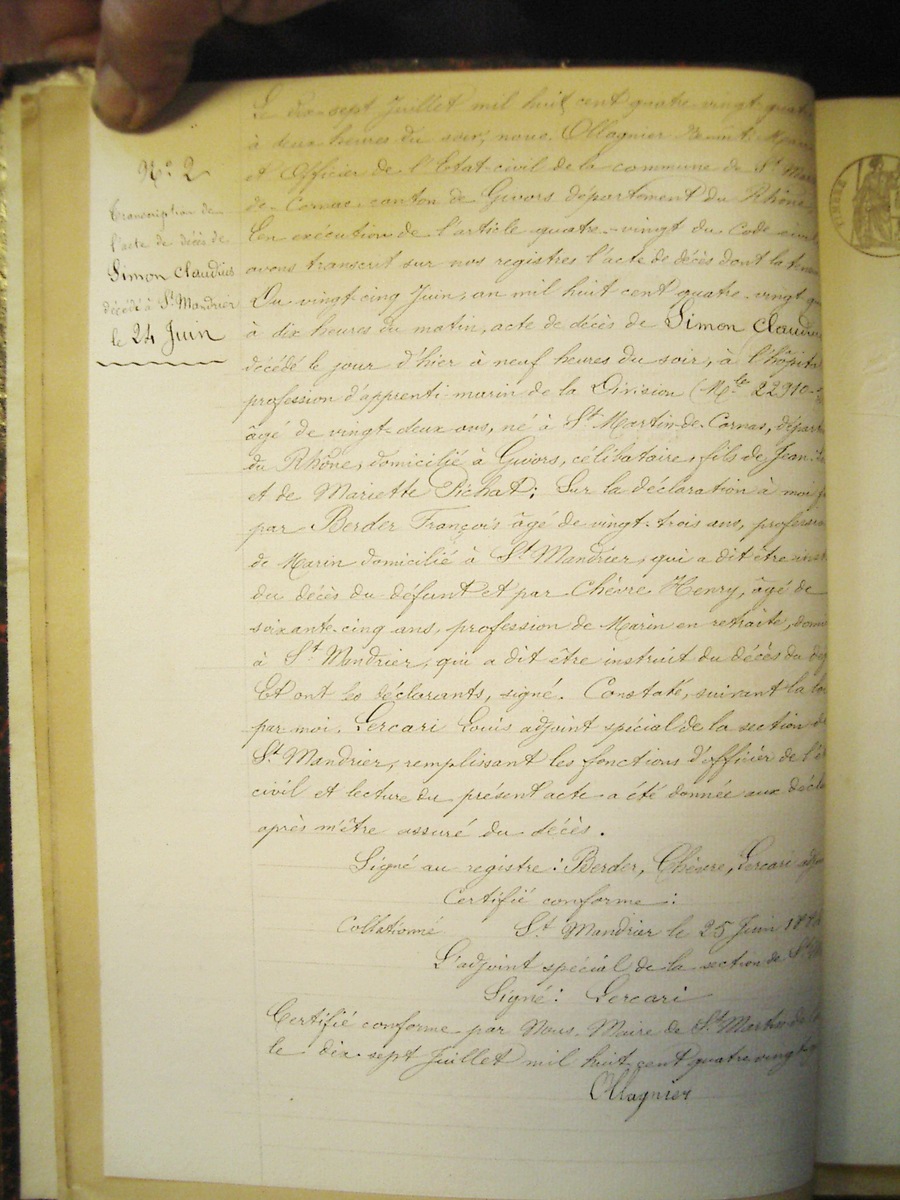 N° 2
Transcription de
l'acte de décès de
Simon Claudius
décédé à St Mandrier
le 24 Juin
Le dix-sept Juillet mil huit cent quatre-vingt-quat
à deux heures du soir, nous Ollagnier Benoit, Maire
et Officier de l'Etat-civil de la commune de St Mart
de-Cornas, canton de Givors département du Rhône,
en exécution de l'article quatre-vingt du Code civil
avons transcrit sur nos registres l'acte de décès dont la ten
Du vingt-cinq Juin, an mil huit cent quatre-vingt q
à dix heures du matin, acte de décès de Simon Claudiu
décédé le jour d'hier à neuf heures du soir, à l'hôpit
profession d'apprenti-marin de la Division (Mle 22910-
âgé de vingt-deux ans, né à St Martin-de-Cornas, départ
du Rhône, domicilié à Givors, célibataire, fils de Jean
et de Mariette Pichat; Sur la déclaration à moi f
par Berder François âgé de vingt-trois ans, profession
de Marin domicilié à St Mandrier, qui a dit être inst
du décès du défunt et par Chèvre Henry, âgé de
soixante-cinq ans, profession de Marin en retraite, dom
à St Mandrier, qui a dit être instruit du décès du déf
Et ont les déclarants, signé. Constaté, suivant la loi
par moi, Lercari Louis adjoint spécial de la section d
St Mandrier, remplissant les fonctions d'officier de l'é
civil et lecture du présent acte a été donnée aux décla
après m'être assuré du décès.
Signé au registre: Berder, Chèvre, Lercari adj
Certifié conforme:
Collationné St Mandrier le 25 Juin 18
L'adjoint spécial de la section de St M
Signé: Lercari
Certifié conforme par Nous Maire de St Martin-de
le dix-sept Juillet mil huit cent quatre-vingt-q
Ollagnier
TIMBRE